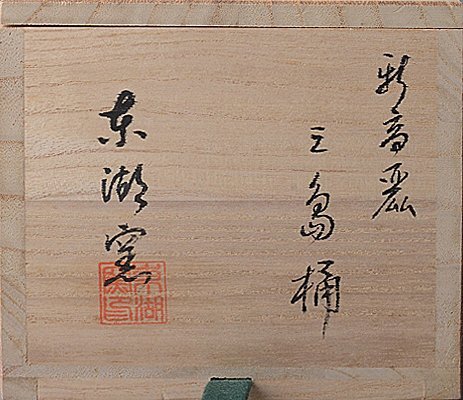 新高麗
三島桶
東湖窯
東湖
窯印